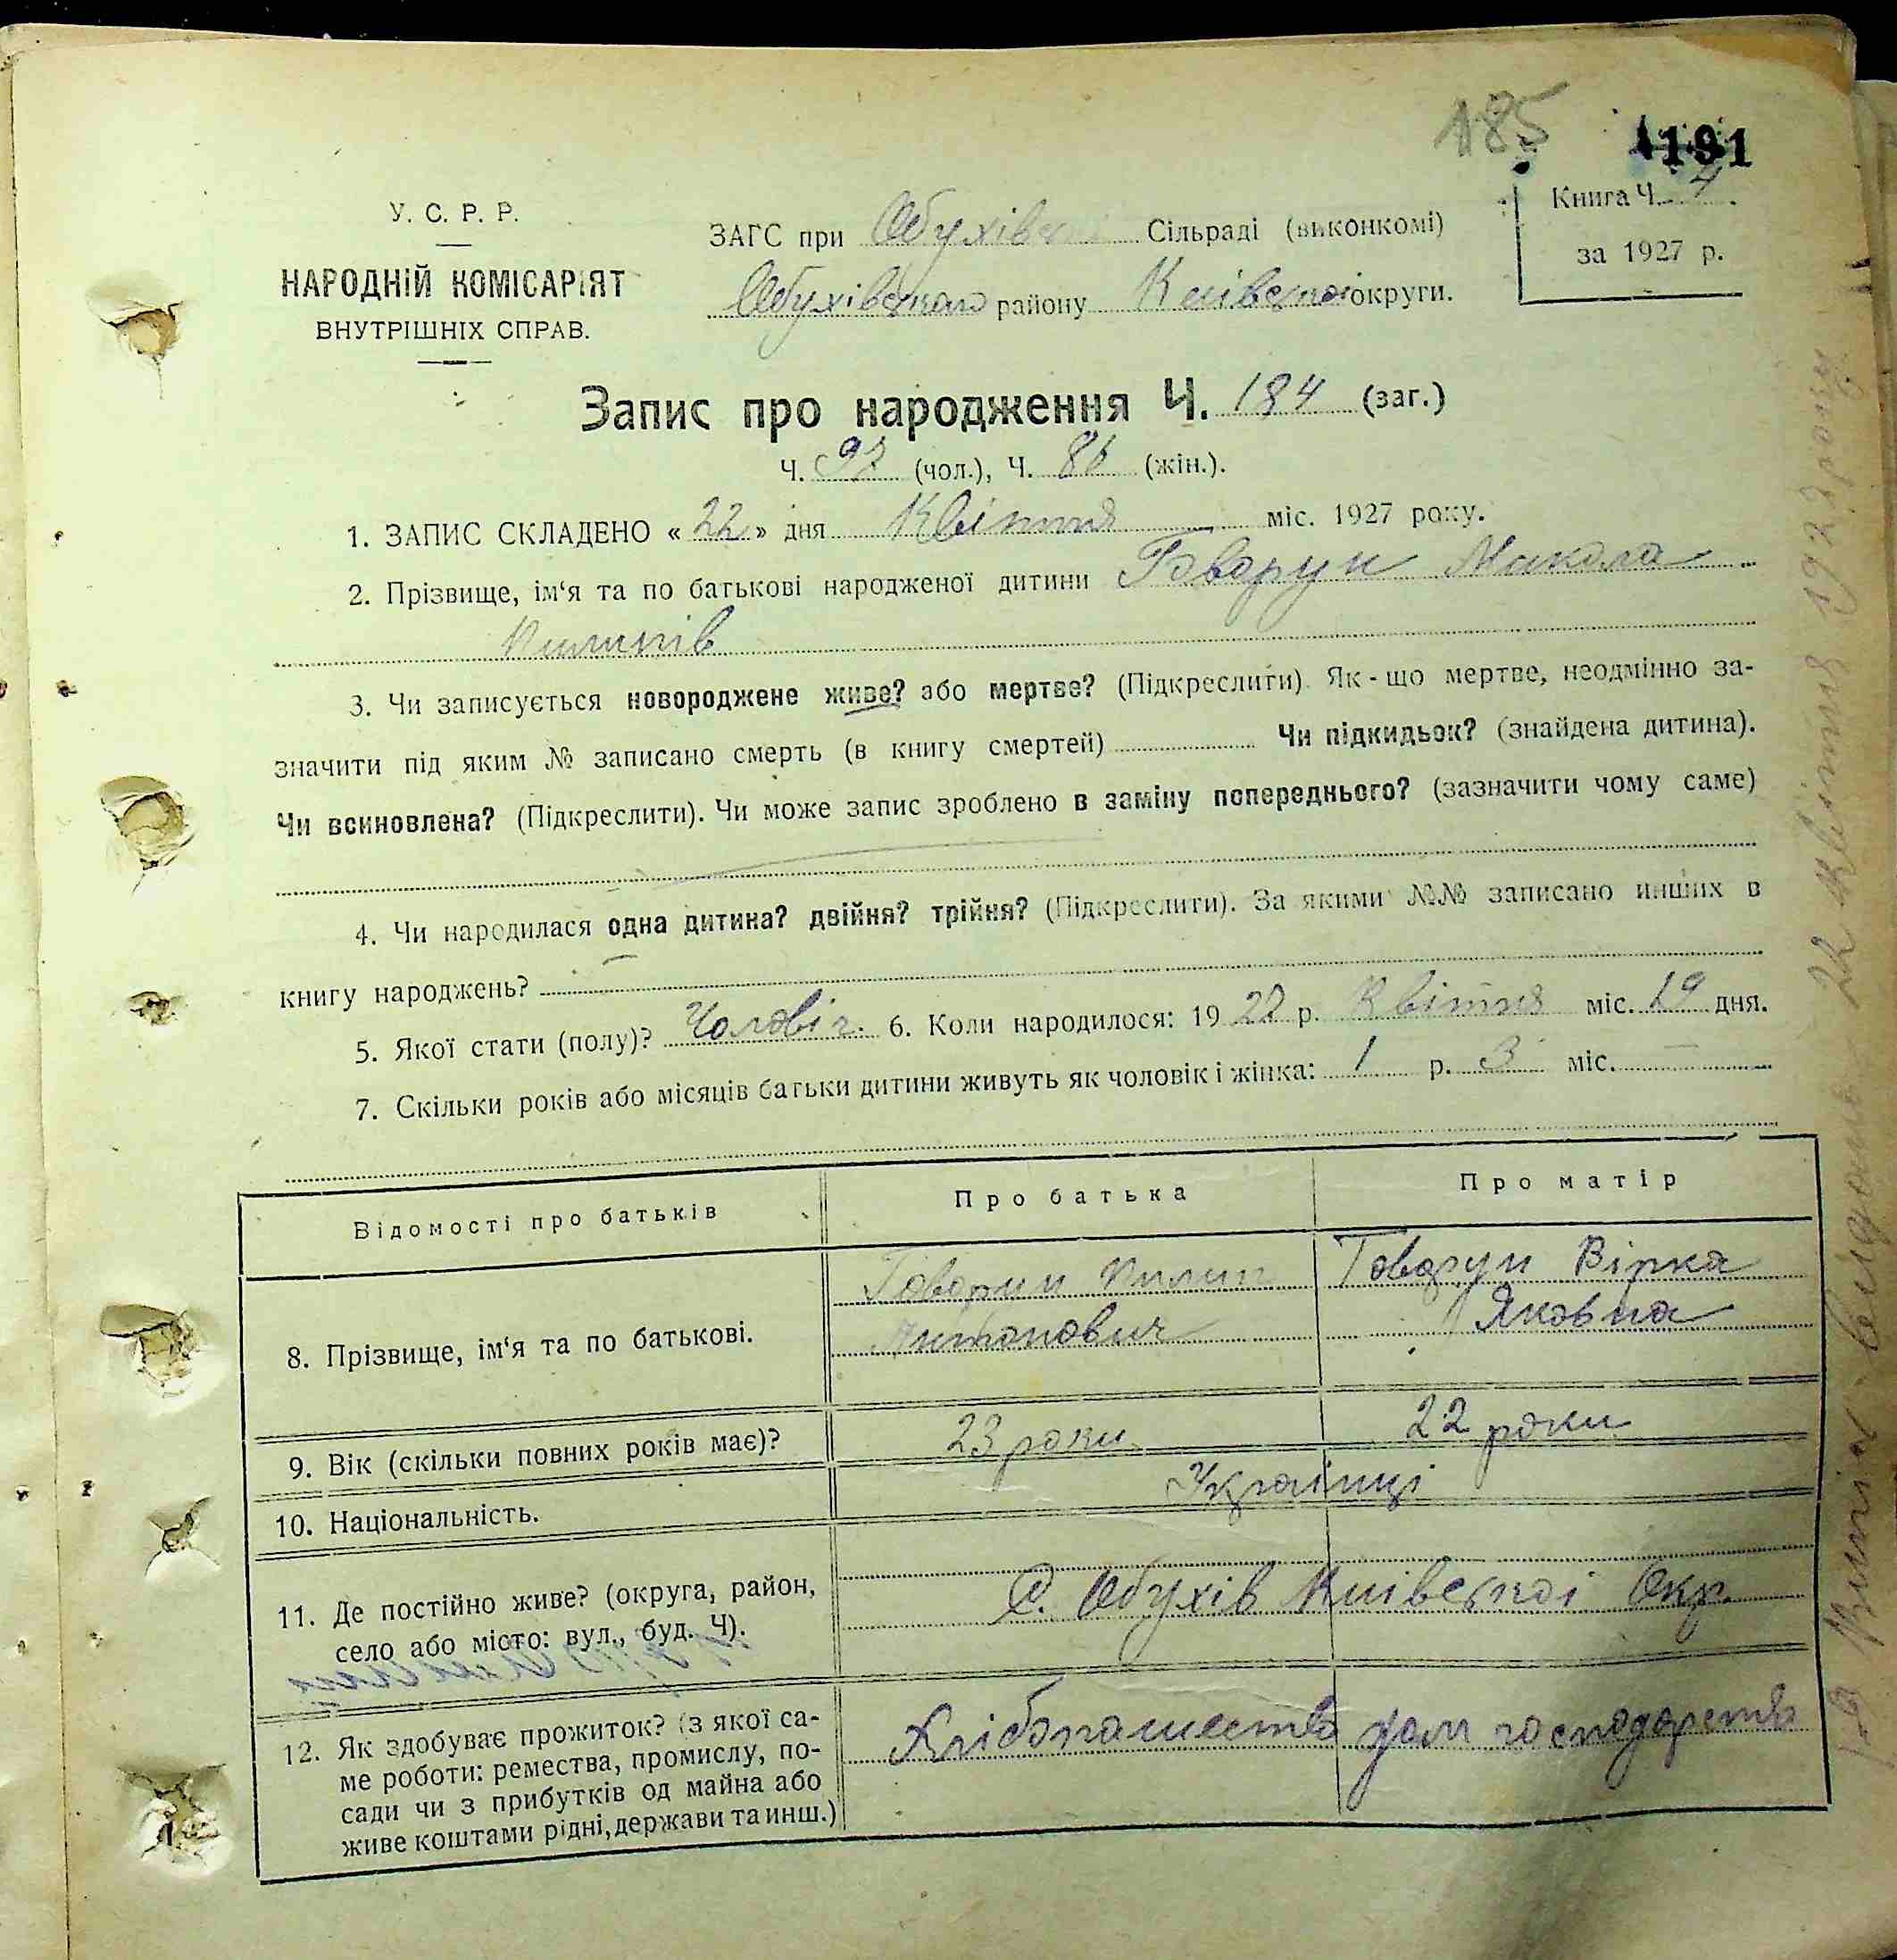 185 4191
Книга Ч. 4.
за 1927 р.
У. С. Р. Р.
НАРОДНІЙ КОМІСАРІЯТ
ВНУТРІШНІХ СПРАВ.
ЗАГС при Обухівській Сільраді (виконкомі)
Обухівського району Київської округи.
Запис про народження Ч. 184 (заг.)
Ч. 97 (чол.), Ч. 86 (жін.).
1. ЗАПИС СКЛАДЕНО « 22 » дня Квітня міс. 1927 року.
2. Прізвище, ім‘я та по батькові народженої дитини Говорун Микола
Пилипів
3. Чи записується новороджене живе? або мертве? (Підкреслити). Як - що мертве, неодмінно за-
значити під яким № записано смерть (в книгу смертей) Чи підкидьок? (знайдена дитина).
Чи всиновлена? (Підкреслити). Чи може запис зроблено в заміну попереднього? (зазначити чому саме)
4. Чи народилася одна дитина? двійня? трійня? (Підкреслити). За якими №№ записано инших в
книгу народжень?
5. Якої стати (полу)? Чоловіч. 6. Коли народилося: 19 27 р. Квітня міс. 19 дня.
7. Скільки років або місяців батьки дитини живуть як чоловік і жінка: 1 р. 3 міс. —
Відомості про батьків Про батька Про матір
8. Прізвище, ім‘я та по батькові.
Говорун Пилип
Антонович
Говорун Вірка
Яковна
9. Вік (скільки повних років має)? 23 роки 22 роки
10. Національність. Українці
11. Де постійно живе? (округа, район,
село або місто: вул., буд. Ч).
С. Обухів Київської Окр.
12. Як здобуває прожиток? (з якої са-
ме роботи: ремества, промислу, по-
сади чи з прибутків од майна або
живе коштами рідні, держави та инш.)
Хлібопашество дом господарство
22 Квітня 1927 року